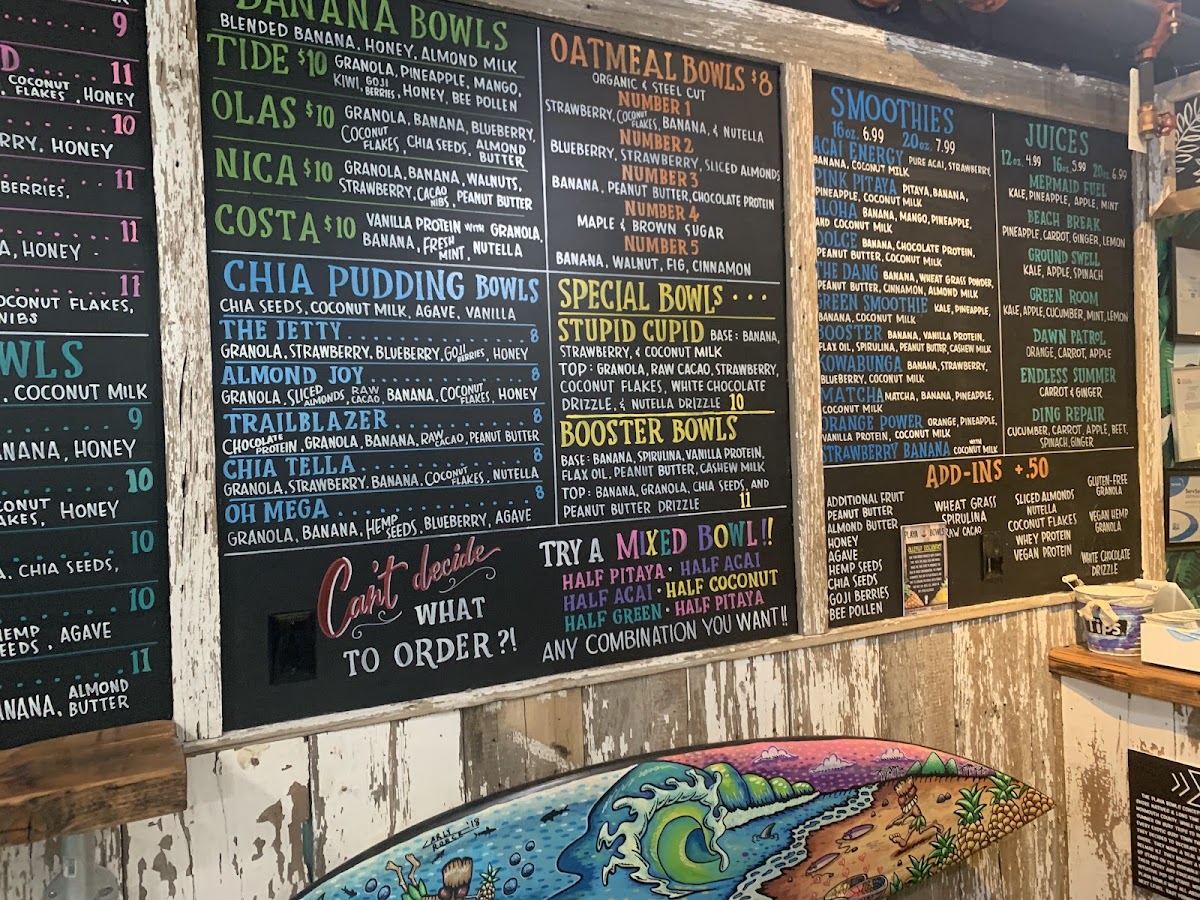 9
D ..... 11
COCONUT FLAKES, HONEY
10
RRY, HONEY
11
BERRIES,
11
A, HONEY
11
OCONUT FLAKES,
NIBS
WLS
, COCONUT MILK
9
ANANA, HONEY
10
CONUT
AKES, HONEY
10
A, CHIA SEEDS,
10
HEMP
SEEDS, AGAVE
11
ANANA, ALMOND BUTTER
BANANA BOWLS
BLENDED BANANA, HONEY, ALMOND MILK
TIDE $10 GRANOLA, PINEAPPLE, MANGO,
KIWI, GOJI BERRIES, HONEY, BEE POLLEN
OLAS $10 GRANOLA, BANANA, BLUEBERRY,
COCONUT FLAKES, CHIA SEEDS, ALMOND BUTTER
NICA $10 GRANOLA, BANANA, WALNUTS,
STRAWBERRY, CACAO NIBS, PEANUT BUTTER
COSTA $10 VANILLA PROTEIN WITH GRANOLA,
BANANA, FRESH MINT, NUTELLA
CHIA PUDDING BOWLS
CHIA SEEDS, COCONUT MILK, AGAVE, VANILLA
THE JETTY ..... 8
GRANOLA, STRAWBERRY, BLUEBERRY, GOJI BERRIES, HONEY
ALMOND JOY ..... 8
GRANOLA, SLICED ALMONDS, RAW CACAO, BANANA, COCONUT FLAKES, HONEY
TRAILBLAZER ..... 8
CHOCOLATE PROTEIN, GRANOLA, BANANA, RAW CACAO, PEANUT BUTTER
CHIA TELLA ..... 8
GRANOLA, STRAWBERRY, BANANA, COCONUT FLAKES, NUTELLA
OH MEGA ..... 8
GRANOLA, BANANA, HEMP SEEDS, BLUEBERRY, AGAVE
OATMEAL BOWLS $8
ORGANIC & STEEL CUT
NUMBER 1
STRAWBERRY, COCONUT FLAKES, BANANA, & NUTELLA
NUMBER 2
BLUEBERRY, STRAWBERRY, SLICED ALMONDS
NUMBER 3
BANANA, PEANUT BUTTER, CHOCOLATE PROTEIN
NUMBER 4
MAPLE & BROWN SUGAR
NUMBER 5
BANANA, WALNUT, FIG, CINNAMON
SPECIAL BOWLS ...
STUPID CUPID BASE: BANANA,
STRAWBERRY, & COCONUT MILK
TOP: GRANOLA, RAW CACAO, STRAWBERRY,
COCONUT FLAKES, WHITE CHOCOLATE
DRIZZLE, & NUTELLA DRIZZLE 10
BOOSTER BOWLS
BASE: BANANA, SPIRULINA, VANILLA PROTEIN,
FLAX OIL, PEANUT BUTTER, CASHEW MILK
TOP: BANANA, GRANOLA, CHIA SEEDS, AND
PEANUT BUTTER DRIZZLE 11
Can't decide
WHAT
TO ORDER?!
TRY A MIXED BOWL!!
HALF PITAYA • HALF ACAI
HALF ACAI • HALF COCONUT
HALF GREEN • HALF PITAYA
ANY COMBINATION YOU WANT!!
SMOOTHIES
16oz. 6.99 20oz. 7.99
ACAI ENERGY PURE ACAI, STRAWBERRY,
BANANA, COCONUT MILK
PINK PITAYA PITAYA, BANANA,
PINEAPPLE, COCONUT MILK
ALOHA BANANA, MANGO, PINEAPPLE,
AND COCONUT MILK
DOLCE BANANA, CHOCOLATE PROTEIN,
PEANUT BUTTER, COCONUT MILK
THE DANG BANANA, WHEAT GRASS POWDER,
PEANUT BUTTER, CINNAMON, ALMOND MILK
GREEN SMOOTHIE KALE, PINEAPPLE,
BANANA, COCONUT MILK
BOOSTER BANANA, VANILLA PROTEIN,
FLAX OIL, SPIRULINA, PEANUT BUTTER, CASHEW MILK
KOWABUNGA BANANA, STRAWBERRY,
BLUEBERRY, COCONUT MILK
MATCHA MATCHA, BANANA, PINEAPPLE,
COCONUT MILK
ORANGE POWER ORANGE, PINEAPPLE,
VANILLA PROTEIN, COCONUT MILK
STRAWBERRY BANANA WITH COCONUT MILK
JUICES
12oz. 4.99 16oz. 5.99 20oz. 6.99
MERMAID FUEL
KALE, PINEAPPLE, APPLE, MINT
BEACH BREAK
PINEAPPLE, CARROT, GINGER, LEMON
GROUND SWELL
KALE, APPLE, SPINACH
GREEN ROOM
KALE, APPLE, CUCUMBER, MINT, LEMON
DAWN PATROL
ORANGE, CARROT, APPLE
ENDLESS SUMMER
CARROT & GINGER
DING REPAIR
CUCUMBER, CARROT, APPLE, BEET,
SPINACH, GINGER
ADD-INS +.50
ADDITIONAL FRUIT
PEANUT BUTTER
ALMOND BUTTER
HONEY
AGAVE
HEMP SEEDS
CHIA SEEDS
GOJI BERRIES
BEE POLLEN
WHEAT GRASS
SPIRULINA
RAW CACAO
SLICED ALMONDS
NUTELLA
COCONUT FLAKES
WHEY PROTEIN
VEGAN PROTEIN
GLUTEN-FREE
GRANOLA
VEGAN HEMP
GRANOLA
WHITE CHOCOLATE
DRIZZLE
PLAYA BOWLS
TIPS